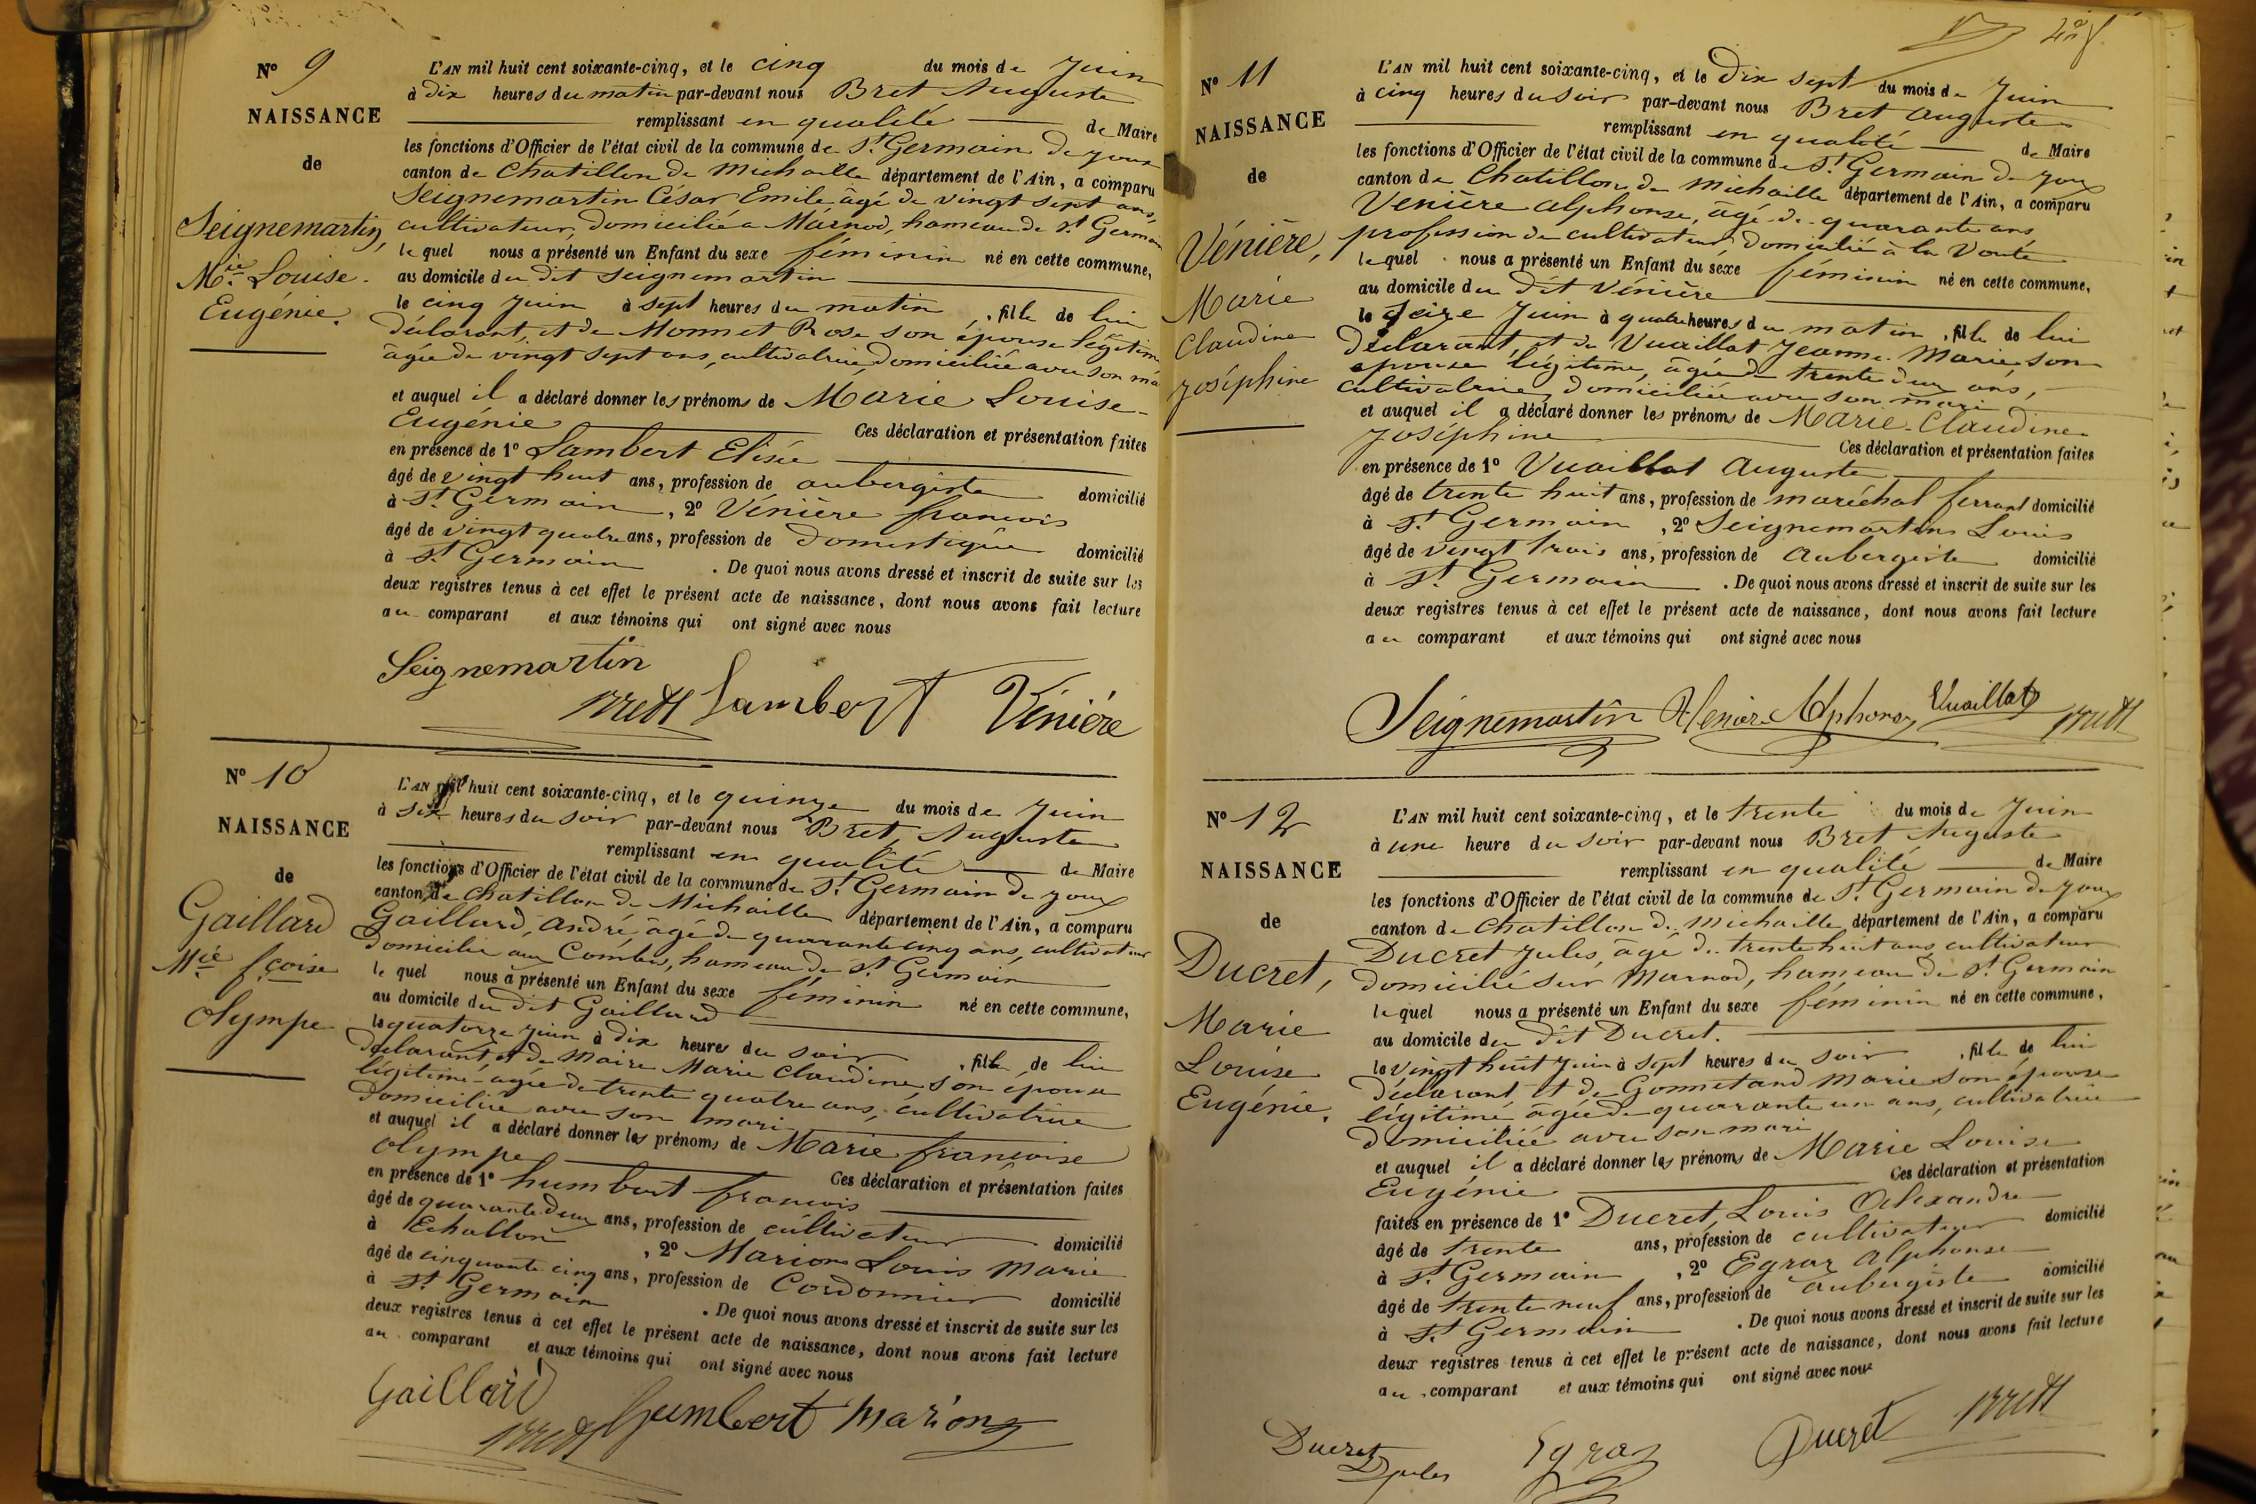 N° 9
NAISSANCE
de
Seignemartin,
Mie Louise
Eugénie.
L'AN mil huit cent soixante-cinq, et le cinq du mois de Juin
à dix heures du matin par-devant nous Bret Auguste
remplissant en qualité de Maire
les fonctions d'Officier de l'état civil de la commune de St Germain de Joux
canton de Chatillon de Michaille département de l'Ain, a comparu
Seignemartin César Emile, âgé de vingt sept ans,
cultivateur, domicilié à Marnod, hameau de St Germain
lequel nous a présenté un Enfant du sexe féminin né en cette commune,
au domicile du dit Seignemartin
le cinq Juin à sept heures du matin, fille de lui
déclarant, et de Monnet Rose son épouse légitime
âgée de vingt sept ans, cultivatrice, domiciliée avec son mari
et auquel il a déclaré donner les prénoms de Marie Louise
Eugénie Ces déclaration et présentation faites
en présence de 1° Lambert Elisée
âgé de vingt huit ans, profession de aubergiste domicilié
à St Germain, 2° Vénière françois
âgé de vingt quatre ans, profession de domestique domicilié
à St Germain. De quoi nous avons dressé et inscrit de suite sur les
deux registres tenus à cet effet le présent acte de naissance, dont nous avons fait lecture
au comparant et aux témoins qui ont signé avec nous
Seignemartin
Brett Lambert Vénière
N° 10
NAISSANCE
de
Gaillard
Mie fçoise
Olympe
L'AN mil huit cent soixante-cinq, et le quinze du mois de Juin
à six heures du soir par-devant nous Bret, Auguste
remplissant en qualité de Maire
les fonctions d'Officier de l'état civil de la commune de St Germain de Joux
canton de Chatillon de Michaille département de l'Ain, a comparu
Gaillard, André âgé de quarante cinq ans, cultivateur
domicilié aux Combes, hameau de St Germain
lequel nous a présenté un Enfant du sexe féminin né en cette commune,
au domicile du dit Gaillard
le quatorze Juin à dix heures du soir, fille de lui
déclarant, et de Maire Marie Claudine, son épouse
légitime âgée de trente quatre ans, cultivatrice
domiciliée avec son mari
et auquel il a déclaré donner les prénoms de Marie françoise
Olympe Ces déclaration et présentation faites
en présence de 1° humbert françois
âgé de quarante deux ans, profession de cultivateur domicilié
à Echallon, 2° Marion Louis Marie
âgé de cinquante cinq ans, profession de Cordonnier domicilié
à St Germain. De quoi nous avons dressé et inscrit de suite sur les
deux registres tenus à cet effet le présent acte de naissance, dont nous avons fait lecture
au comparant et aux témoins qui ont signé avec nous
Gaillard
Brett humbert Marion
N° 11
NAISSANCE
de
Vénière,
Marie
Claudine
Joséphine
L'AN mil huit cent soixante-cinq, et le Dix sept du mois de Juin
à cinq heures du soir par-devant nous Bret Auguste
remplissant en qualité de Maire
les fonctions d'Officier de l'état civil de la commune de St Germain de Joux
canton de Chatillon de Michaille département de l'Ain, a comparu
Vénière Alphonse, âgé de quarante ans
profession de cultivateur, domicilié à la Voute
lequel nous a présenté un Enfant du sexe féminin né en cette commune,
au domicile du dit Vénière
le seize Juin à quatre heures du matin, fille de lui
déclarant et de Vuaillat Jeanne Marie, son
épouse légitime, âgée de trente deux ans,
cultivatrice, domiciliée avec son mari
et auquel il a déclaré donner les prénoms de Marie Claudine
Joséphine Ces déclaration et présentation faites
en présence de 1° Vuaillat Auguste
âgé de trente huit ans, profession de maréchal ferrant domicilié
à St Germain, 2° Seignemartin Louis
âgé de vingt trois ans, profession de Aubergiste domicilié
à St Germain. De quoi nous avons dressé et inscrit de suite sur les
deux registres tenus à cet effet le présent acte de naissance, dont nous avons fait lecture
au comparant et aux témoins qui ont signé avec nous
Seignemartin Venière Alphonse Vuaillat Brett
N° 12
NAISSANCE
de
Ducret,
Marie
Louise
Eugénie.
L'AN mil huit cent soixante-cinq, et le trente du mois de Juin
à une heure du soir par-devant nous Bret Auguste
remplissant en qualité de Maire
les fonctions d'Officier de l'état civil de la commune de St Germain de Joux
canton de Chatillon de Michaille département de l'Ain, a comparu
Ducret Jules, âgé de trente huit ans cultivateur
domicilié sur Marnod, hameau de St Germain
lequel nous a présenté un Enfant du sexe féminin né en cette commune,
au domicile du dit Ducret.
le vingt huit Juin à sept heures du soir, fille de lui
déclarant, et de Gonnetand Marie son épouse
légitime âgée de quarante un ans, cultivatrice
domiciliée avec son mari
et auquel il a déclaré donner les prénoms de Marie Louise
Eugénie Ces déclaration et présentation
faites en présence de 1° Ducret, Louis Alexandre
âgé de trente ans, profession de cultivateur domicilié
à St Germain, 2° Egraz Alphonse
âgé de trente neuf ans, profession de aubergiste domicilié
à St Germain. De quoi nous avons dressé et inscrit de suite sur les
deux registres tenus à cet effet le présent acte de naissance, dont nous avons fait lecture
au comparant et aux témoins qui ont signé avec nous
Ducret Jules Egraz Ducret Brett